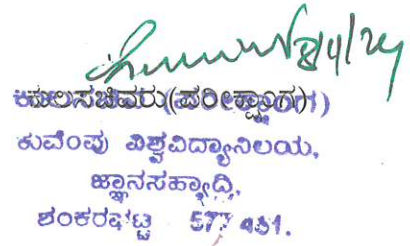 8/4/24
ಕುಲಸಚಿವರು(ಪರೀಕ್ಷಾಂಗ)
ಕುವೆಂಪು ವಿಶ್ವವಿದ್ಯಾನಿಲಯ,
ಜ್ಞಾನಸಹ್ಯಾದ್ರಿ,
ಶಂಕರಘಟ್ಟ 577 451.